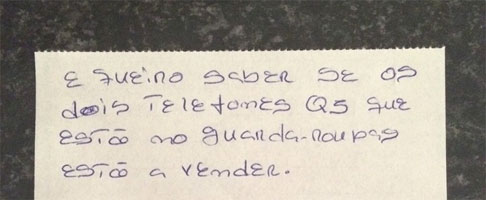 E queiro saber se os
dois Telefones Q5 que
estão no guarda-roupas
estão a vender.